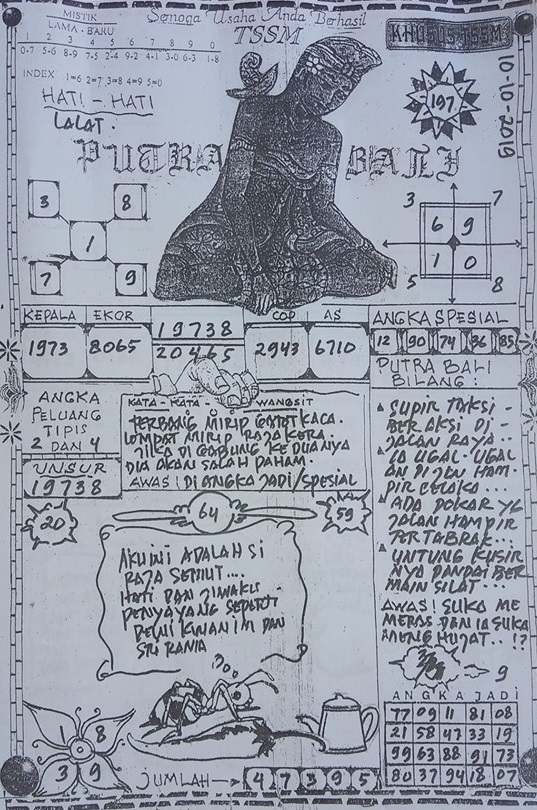 MISTIK
LAMA - BARU
1 2 3 4 5 6 7 8 9 0
0-7 5-6 8-9 7-5 2-4 9-2 4-1 3-0 6-3 1-8
INDEX 1=6 2=7 3=8 4=9 5=0
HATI - HATI
LALAT.
Semoga Usaha Anda Berhasil
TSSM
KHUSUS TSSM
197
10-10-2019
PUTRA BALI
3 8
1
7 9
3 7
6 9
1 0
5 8
KEPALA EKOR
1973 8065
19738
20465
COP AS
2943 6710
ANGKA SPESIAL
12 90 74 36 85
ANGKA
PELUANG
TIPIS
2 DAN 4
UNSUR
19738
KATA - KATA - WANGSIT
TERBANG MIRIP GATOT KACA.
LOMPAT MIRIP RAJA KERA.
JIKA DI GABUNG KEDUANYA
DIA AKAN SALAH PAHAM.
AWAS! DI ANGKA JADI/SPESIAL
PUTRA BALI
BILANG:
SUPIR TAKSI -
BERAKSI DI -
JALAN RAYA..
IA UGAL-UGAL
AN DI JLN HAM-
PIR CELAKA...
ADA DOKAR YG
JALAN HAMPIR
TERTABRAK...
UNTUNG KUSIR
NYA PANDAI BER
MAIN SILAT...
AWAS! SUKA ME
MERAS DAN IA SUKA
MENGHUJAT..!?
20
64
59
AKU INI ADALAH SI
RAJA SEMUT....
HATI DAN JIWAKU -
PENYAYANG SEPERTI
DEWI KWAN IM DAN
SRI RANIA
9
ANGKA JADI
77 09 11 81 08
21 58 47 33 19
99 63 88 91 73
80 37 94 18 07
1 8
3 9
JUMLAH → 4 7 3 9 5